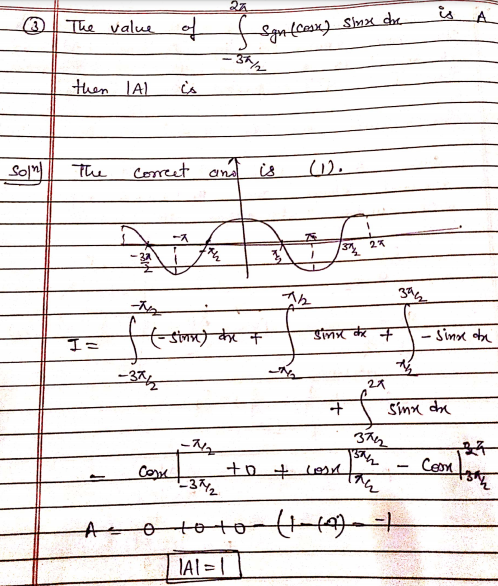 ③ The value of ∫_{-3π/2}^{2π} Sgn(cosx) sinx dx is A
then |A| is
Solⁿ] The correct ans is (1).
-3π/2 -π -π/2 π/2 π 3π/2 2π
I = ∫_{-3π/2}^{-π/2} (-sinx) dx + ∫_{-π/2}^{π/2} sinx dx + ∫_{π/2}^{3π/2} - sinx dx
+ ∫_{3π/2}^{2π} sinx dx
= cosx |_{-3π/2}^{-π/2} + 0 + cosx |_{π/2}^{3π/2} - cosx |_{3π/2}^{2π}
A = 0 + 0 + 0 - (1 - (0)) = -1
|A| = 1